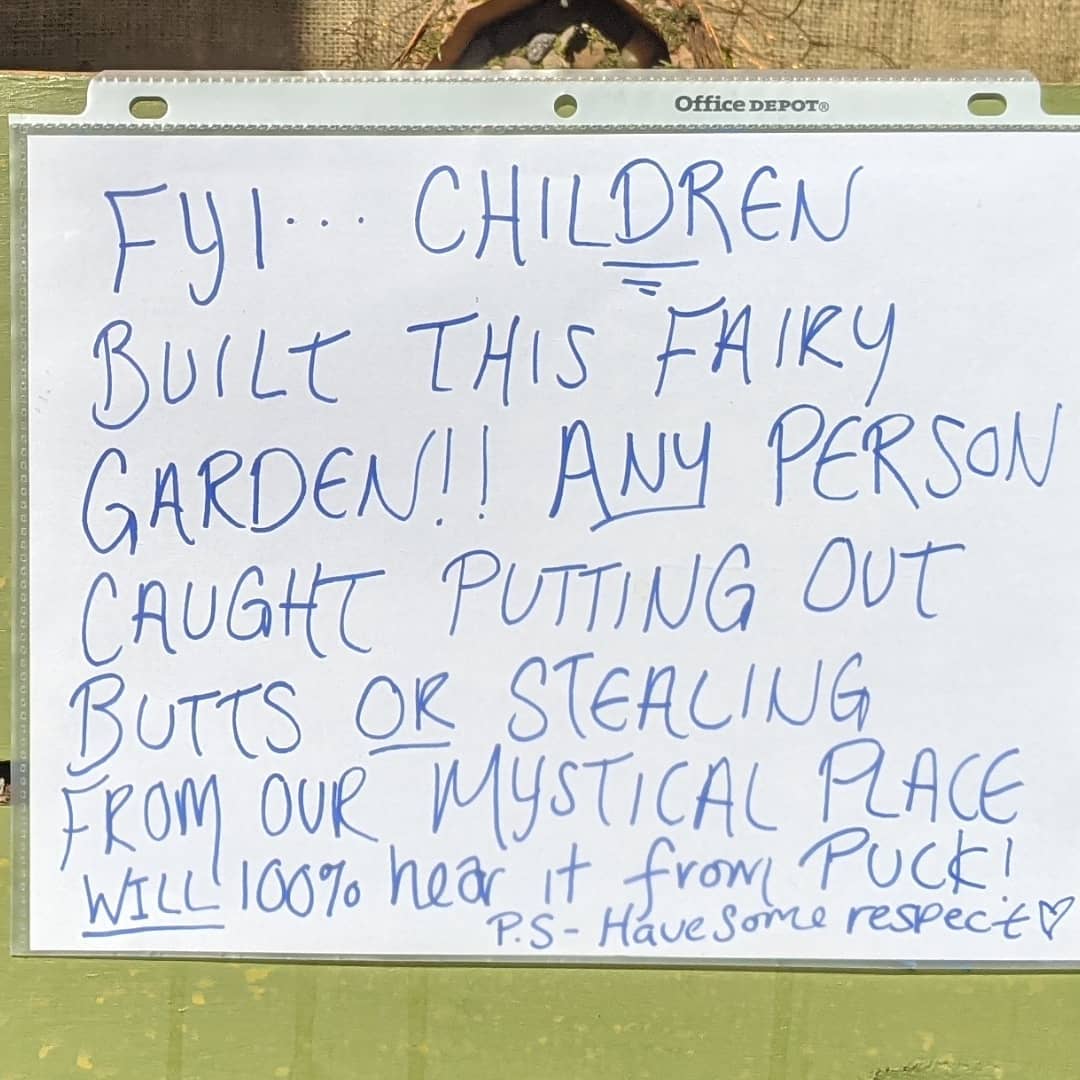 Office DEPOT®
FYI... CHILDREN
BUILT THIS FAIRY
GARDEN!! ANY PERSON
CAUGHT PUTTING OUT
BUTTS OR STEALING
FROM OUR MYSTICAL PLACE
WILL 100% hear it from PUCK!
P.S- Have some respect♡